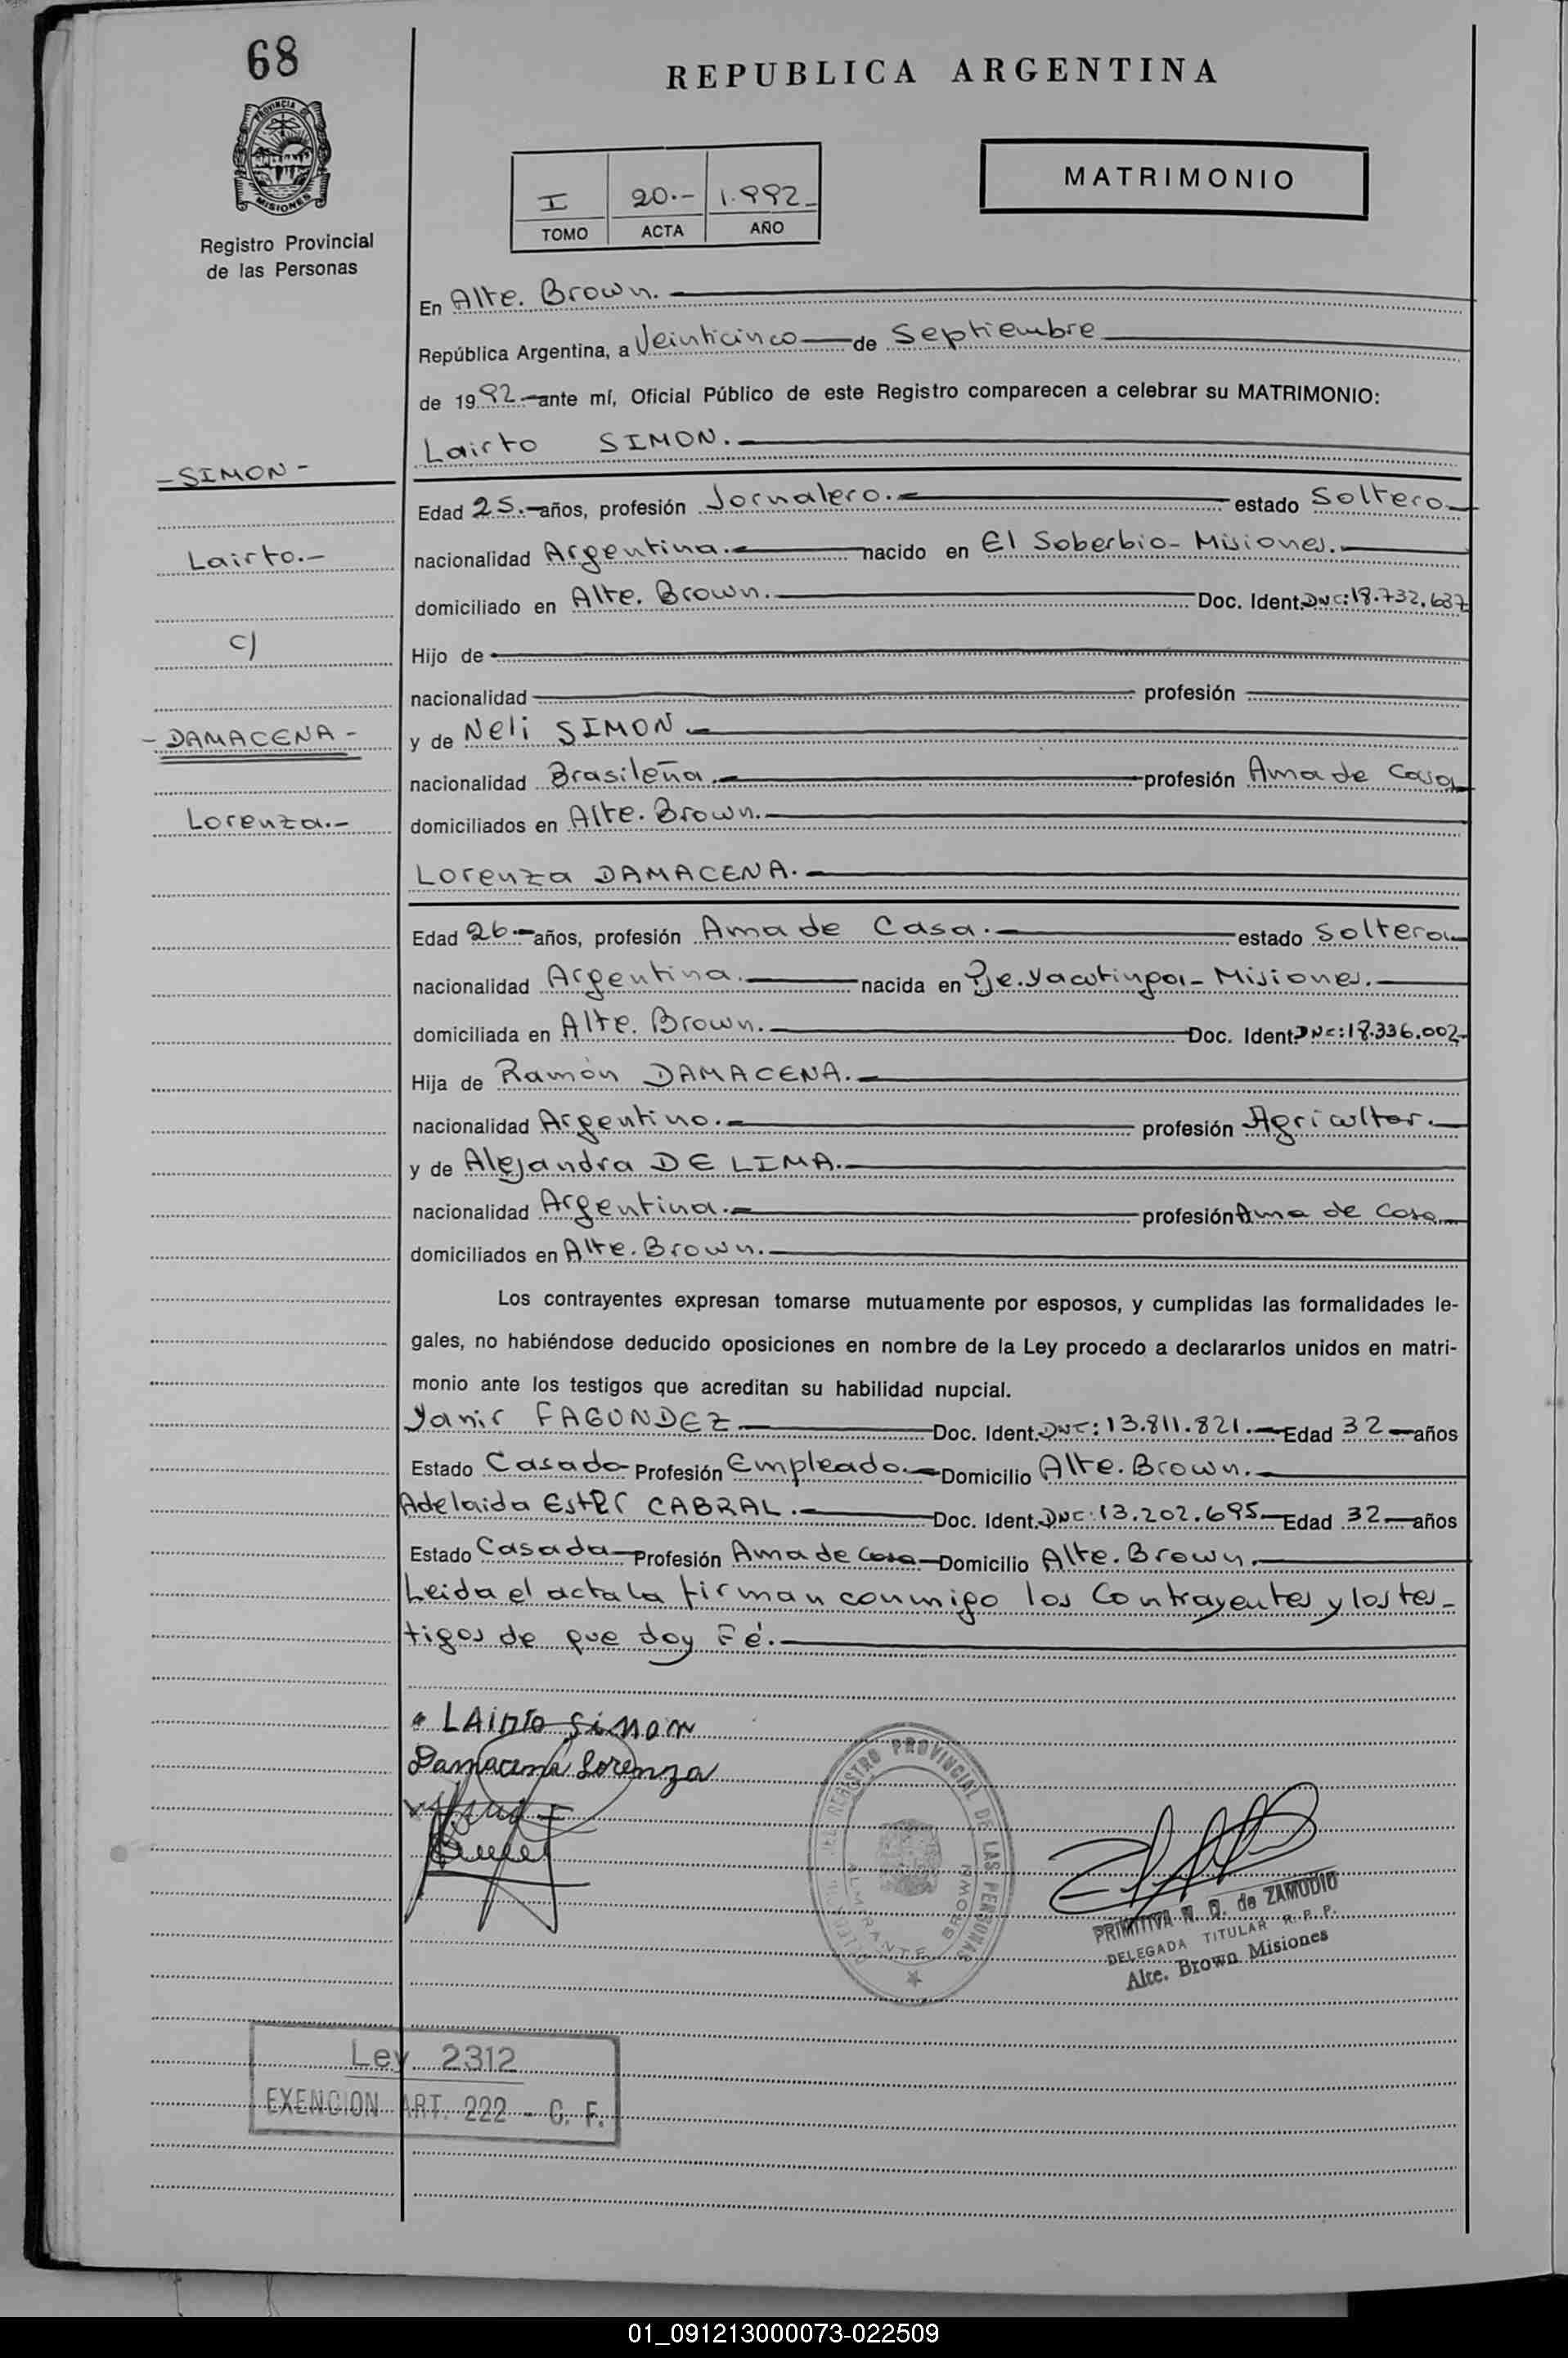 68
REPUBLICA ARGENTINA
PROVINCIA
MISIONES
Registro Provincial
de las Personas
I 20.- 1.992_
TOMO ACTA AÑO
MATRIMONIO
En Alte. Brown.
República Argentina, a Veinticinco de Septiembre
de 1992 ante mí, Oficial Público de este Registro comparecen a celebrar su MATRIMONIO:
Lairto SIMON.
- SIMON -
Edad 25.- años, profesión Jornalero. estado Soltero
Lairto.-
nacionalidad Argentina. nacido en El Soberbio - Misiones.
domiciliado en Alte. Brown. Doc. Ident. DNC: 18.732.637
c/
Hijo de
nacionalidad profesión
- DAMACENA -
y de Neli SIMON
nacionalidad Brasileña. profesión Ama de Casa
Lorenza.-
domiciliados en Alte. Brown.
Lorenza DAMACENA.
Edad 26.- años, profesión Ama de Casa. estado Soltera
nacionalidad Argentina. nacida en Pje. Yacutinga - Misiones.
domiciliada en Alte. Brown. Doc. Ident. DNC: 18.336.002
Hija de Ramón DAMACENA.
nacionalidad Argentino. profesión Agricultor.
y de Alejandra DE LIMA.
nacionalidad Argentina. profesión Ama de Casa
domiciliados en Alte. Brown.
Los contrayentes expresan tomarse mutuamente por esposos, y cumplidas las formalidades le-
gales, no habiéndose deducido oposiciones en nombre de la Ley procedo a declararlos unidos en matri-
monio ante los testigos que acreditan su habilidad nupcial.
Yanir FAGUNDEZ Doc. Ident. DNC: 13.811.821. Edad 32 años
Estado Casado Profesión Empleado. Domicilio Alte. Brown.
Adelaida Ester CABRAL. Doc. Ident. DNC: 13.202.695 Edad 32 años
Estado Casada Profesión Ama de Casa Domicilio Alte. Brown.
Leida el acta la firman conmigo los Contrayentes y los tes-
tigos de que doy Fé.
LAIRTO SiMON
Damacena Lorenza
REGISTRO PROVINCIAL DE LAS PERSONAS
ALMIRANTE BROWN
PRIMITIVA N. Q. de ZAMUDIO
DELEGADA TITULAR R. P. P.
Alte. Brown Misiones
Ley 2312
EXENCION ART. 222 - C. F.
01_091213000073-022509